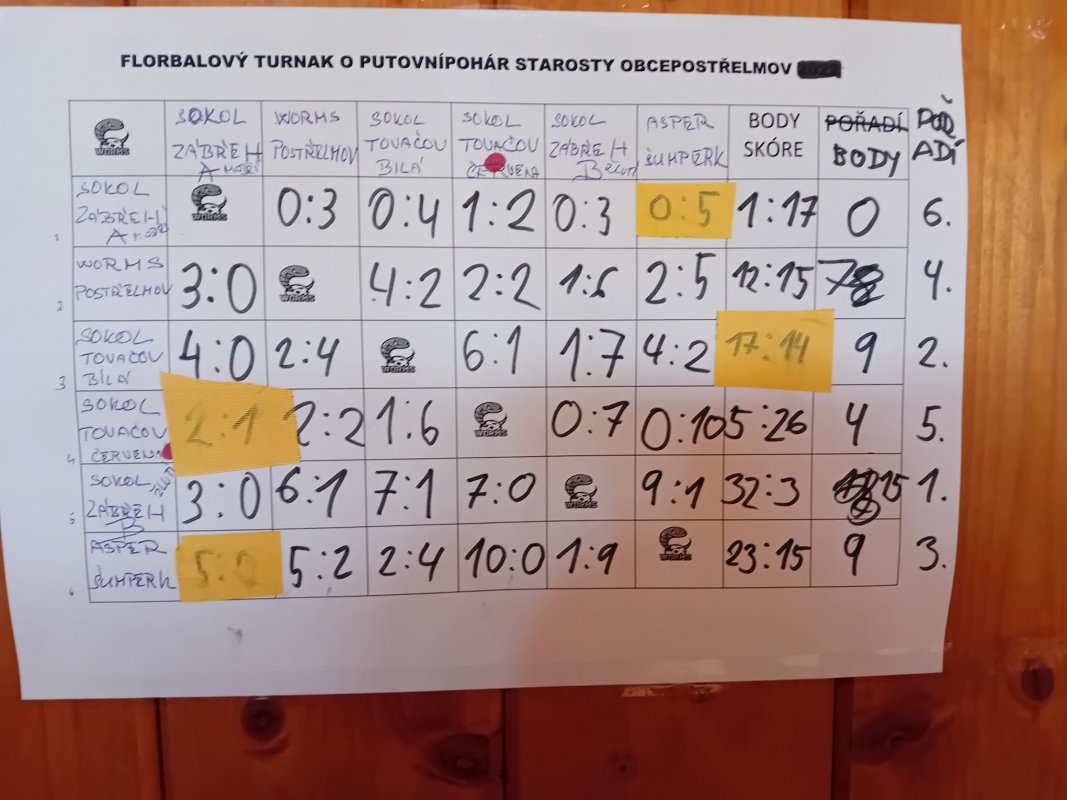 FLORBALOVÝ TURNAK O PUTOVNÍPOHÁR STAROSTY OBCEPOSTŘELMOV
SOKOL ZÁBŘEH A MODŘÍ WORMS POSTŘELMOV SOKOL TOVAČOV BILÁ SOKOL TOVAČOV ČERVENA SOKOL ZÁBŘEH B ŽLUTÍ ASPER ŠUMPERK BODY SKÓRE POŘADÍ BODY POŘADÍ
1 SOKOL ZÁBŘEH A MODŘÍ WORMS 0:3 0:4 1:2 0:3 0:5 1:17 0 6.
2 WORMS POSTŘELMOV 3:0 WORMS 4:2 2:2 1:6 2:5 12:15 7 4.
3 SOKOL TOVAČOV BÍLÁ 4:0 2:4 WORMS 6:1 1:7 4:2 17:14 9 2.
4 SOKOL TOVAČOV ČERVENA 2:1 2:2 1:6 WORMS 0:7 0:10 5:26 4 5.
5 SOKOL ZÁBŘEH B ŽLUTÍ 3:0 6:1 7:1 7:0 WORMS 9:1 32:3 15 1.
6 ASPER ŠUMPERK 5:0 5:2 2:4 10:0 1:9 WORMS 23:15 9 3.